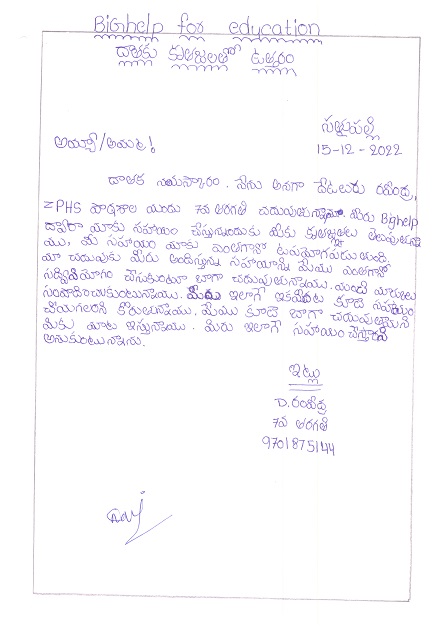 BigHelp for education
దాతకు కృతజ్ఞతలతో ఉత్తరం
సత్తుపల్లి
15-12-2022
అయ్యా/అమ్మా!
దాతకు నమస్కారం. నేను అనగా దేటలూరు రవీంద్ర,
ZPHS పాఠశాల యందు 7వ తరగతి చదువుతున్నాను. మీరు Bighelp
ద్వారా మాకు సహాయం చేస్తున్నందుకు మీకు కృతజ్ఞతలు తెలుపుతున్నా
ము, మీ సహాయం మాకు ఎంతగానో ఉపయోగపడుతుంది.
మా చదువుకు మీరు అందిస్తున్న సహాయాన్ని మేము ఎంతగానో
సద్వినియోగం చేసుకుంటూ బాగా చదువుతున్నాము. మంచి మార్కులు
సంపాదించుకుంటున్నాము. మీరు ఇలాగే ఇకమీదట కూడా సహాయం
చేయగలరని కోరుతున్నాము, మేము కూడా బాగా చదువుతామని
మీకు మాట ఇస్తున్నాము. మీరు ఇలాగే సహాయం చేస్తారని
అనుకుంటున్నాను.
ఇట్లు
D.రవీంద్ర
7వ తరగతి
9701875144